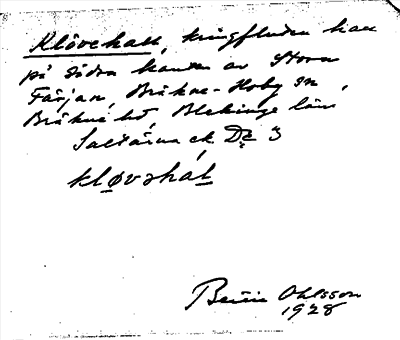 Klövehall, kringfluden hall
på södra kanten av Stora
Färjan, Bräkne-Hoby sn,
Bräkne hd, Blekinge län
Saltärna ek Dc 3
kløvəhál
Berit Ohlsson
1928